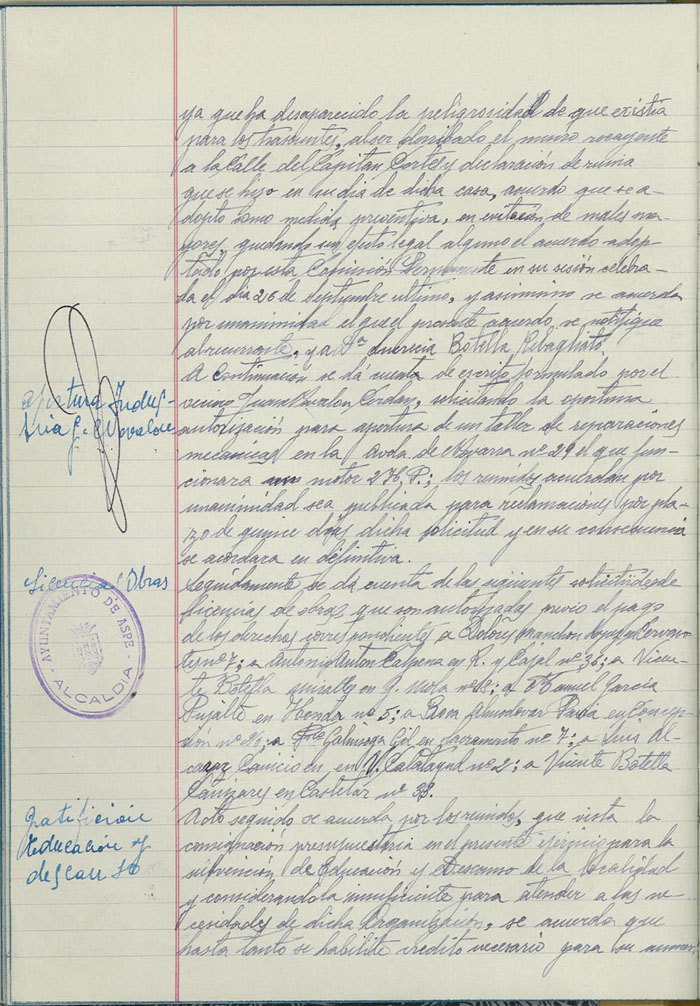 ya que ha desaparecido la peligrosidad de que existia
para los trasuntes, al ser derribado el muro recayente
a la Calle del Capitan Cortés y declaración de ruina
que se hizo en su dia de dicha casa, acuerdo que se a-
dopto como medida preventiva, en evitación de males ma-
yores, quedando sin efecto legal alguno el acuerdo adop-
tado por esta Comisión Permanente en su sesión celebra-
da el dia 26 de Septiembre ultimo, y asimismo se acuerda
por unanimidad el que el presente acuerdo se notifique
al recurrente, y a Dª Botella
Apertura Indus-
tria
A continuación se dá cuenta de escrito formulado por el
vecino Juan solicitando la oportuna
autorización para apertura de un taller de reparaciones
mecanicas en la Avda. de Navarra nº 29 el que fun-
cionara motor 2 H.P.; los reunidos acuerdan por
unanimidad sea publicada para reclamaciones por pla-
zo de quince dias dicha solicitud y en su consecuencia
se acordara en definitiva.
Licencias Obras
AYUNTAMIENTO DE ASPE
ALCALDIA
Seguidamente se dá cuenta de las siguientes solicitudes de
licencias de obras que son autorizadas previo el pago
de los derechos correspondientes a Dolores en Cervan-
tes nº 7; a Antonio Anton Calpena en R. y Cajal nº 36; a Vicen-
te Botella en G. Mola nº 18; a Manuel Garcia
Pujalte en Honda nº 5; a Rosa Almodovar Pavia en Concep-
ción nº 26; a Galinsoga Gil en Sacramento nº 7; a Luis Al-
caraz en V. Calatayud nº 2; a Vicente Botella
Cañizares en Castelar nº 33.
Gratificion
Educación y
descanso
Acto seguido se acuerda por los reunidos, que vista la
consignación presupuestaria en el presente ejercicio para la
subvención de Educación y Descanso de la localidad
y considerandola insuficiente para atender a las ne-
cesidades de dicha Organización, se acuerda que
hasta tanto se habilite credito necesario para su aumen